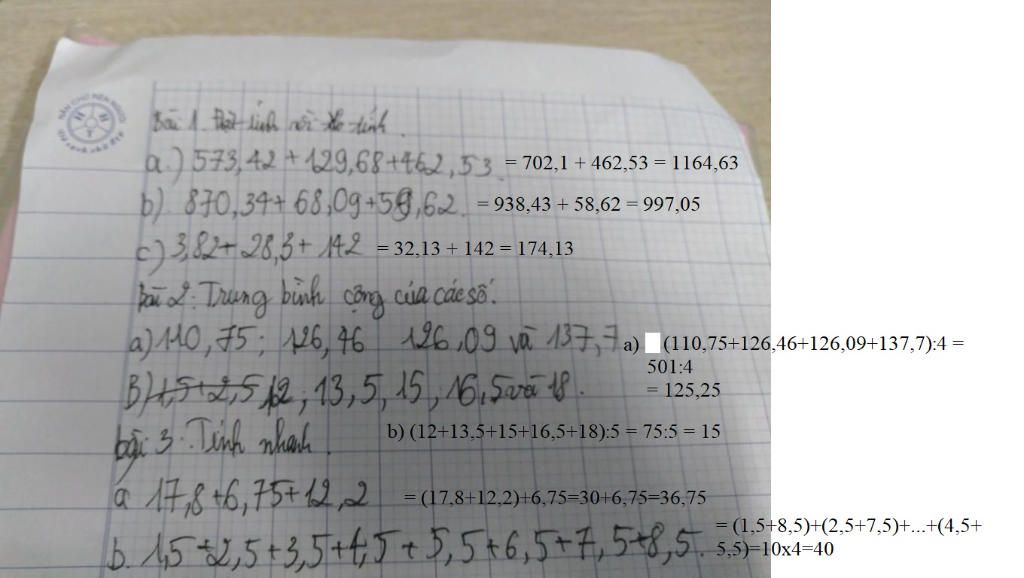 Bài 1. Đặt tính rồi tính.
a.) 573,42 + 129,68 + 462,53. = 702,1 + 462,53 = 1164,63
b) 870,34 + 68,09 + 58,62. = 938,43 + 58,62 = 997,05
c) 3,82 + 28,3 + 142 = 32,13 + 142 = 174,13
Bài 2: Trung bình cộng của các số.
a) 110,75; 126,46 126,09 và 137,7 a) (110,75+126,46+126,09+137,7):4 =
501:4
= 125,25
B) 1,5+2,5 12; 13,5, 15, 16,5 và 18.
bài 3: Tính nhanh. b) (12+13,5+15+16,5+18):5 = 75:5 = 15
a 17,8+6,75+12,2 = (17,8+12,2)+6,75=30+6,75=36,75
b. 1,5+2,5+3,5+4,5+5,5+6,5+7,5+8,5. = (1,5+8,5)+(2,5+7,5)+...+(4,5+
5,5)=10x4=40